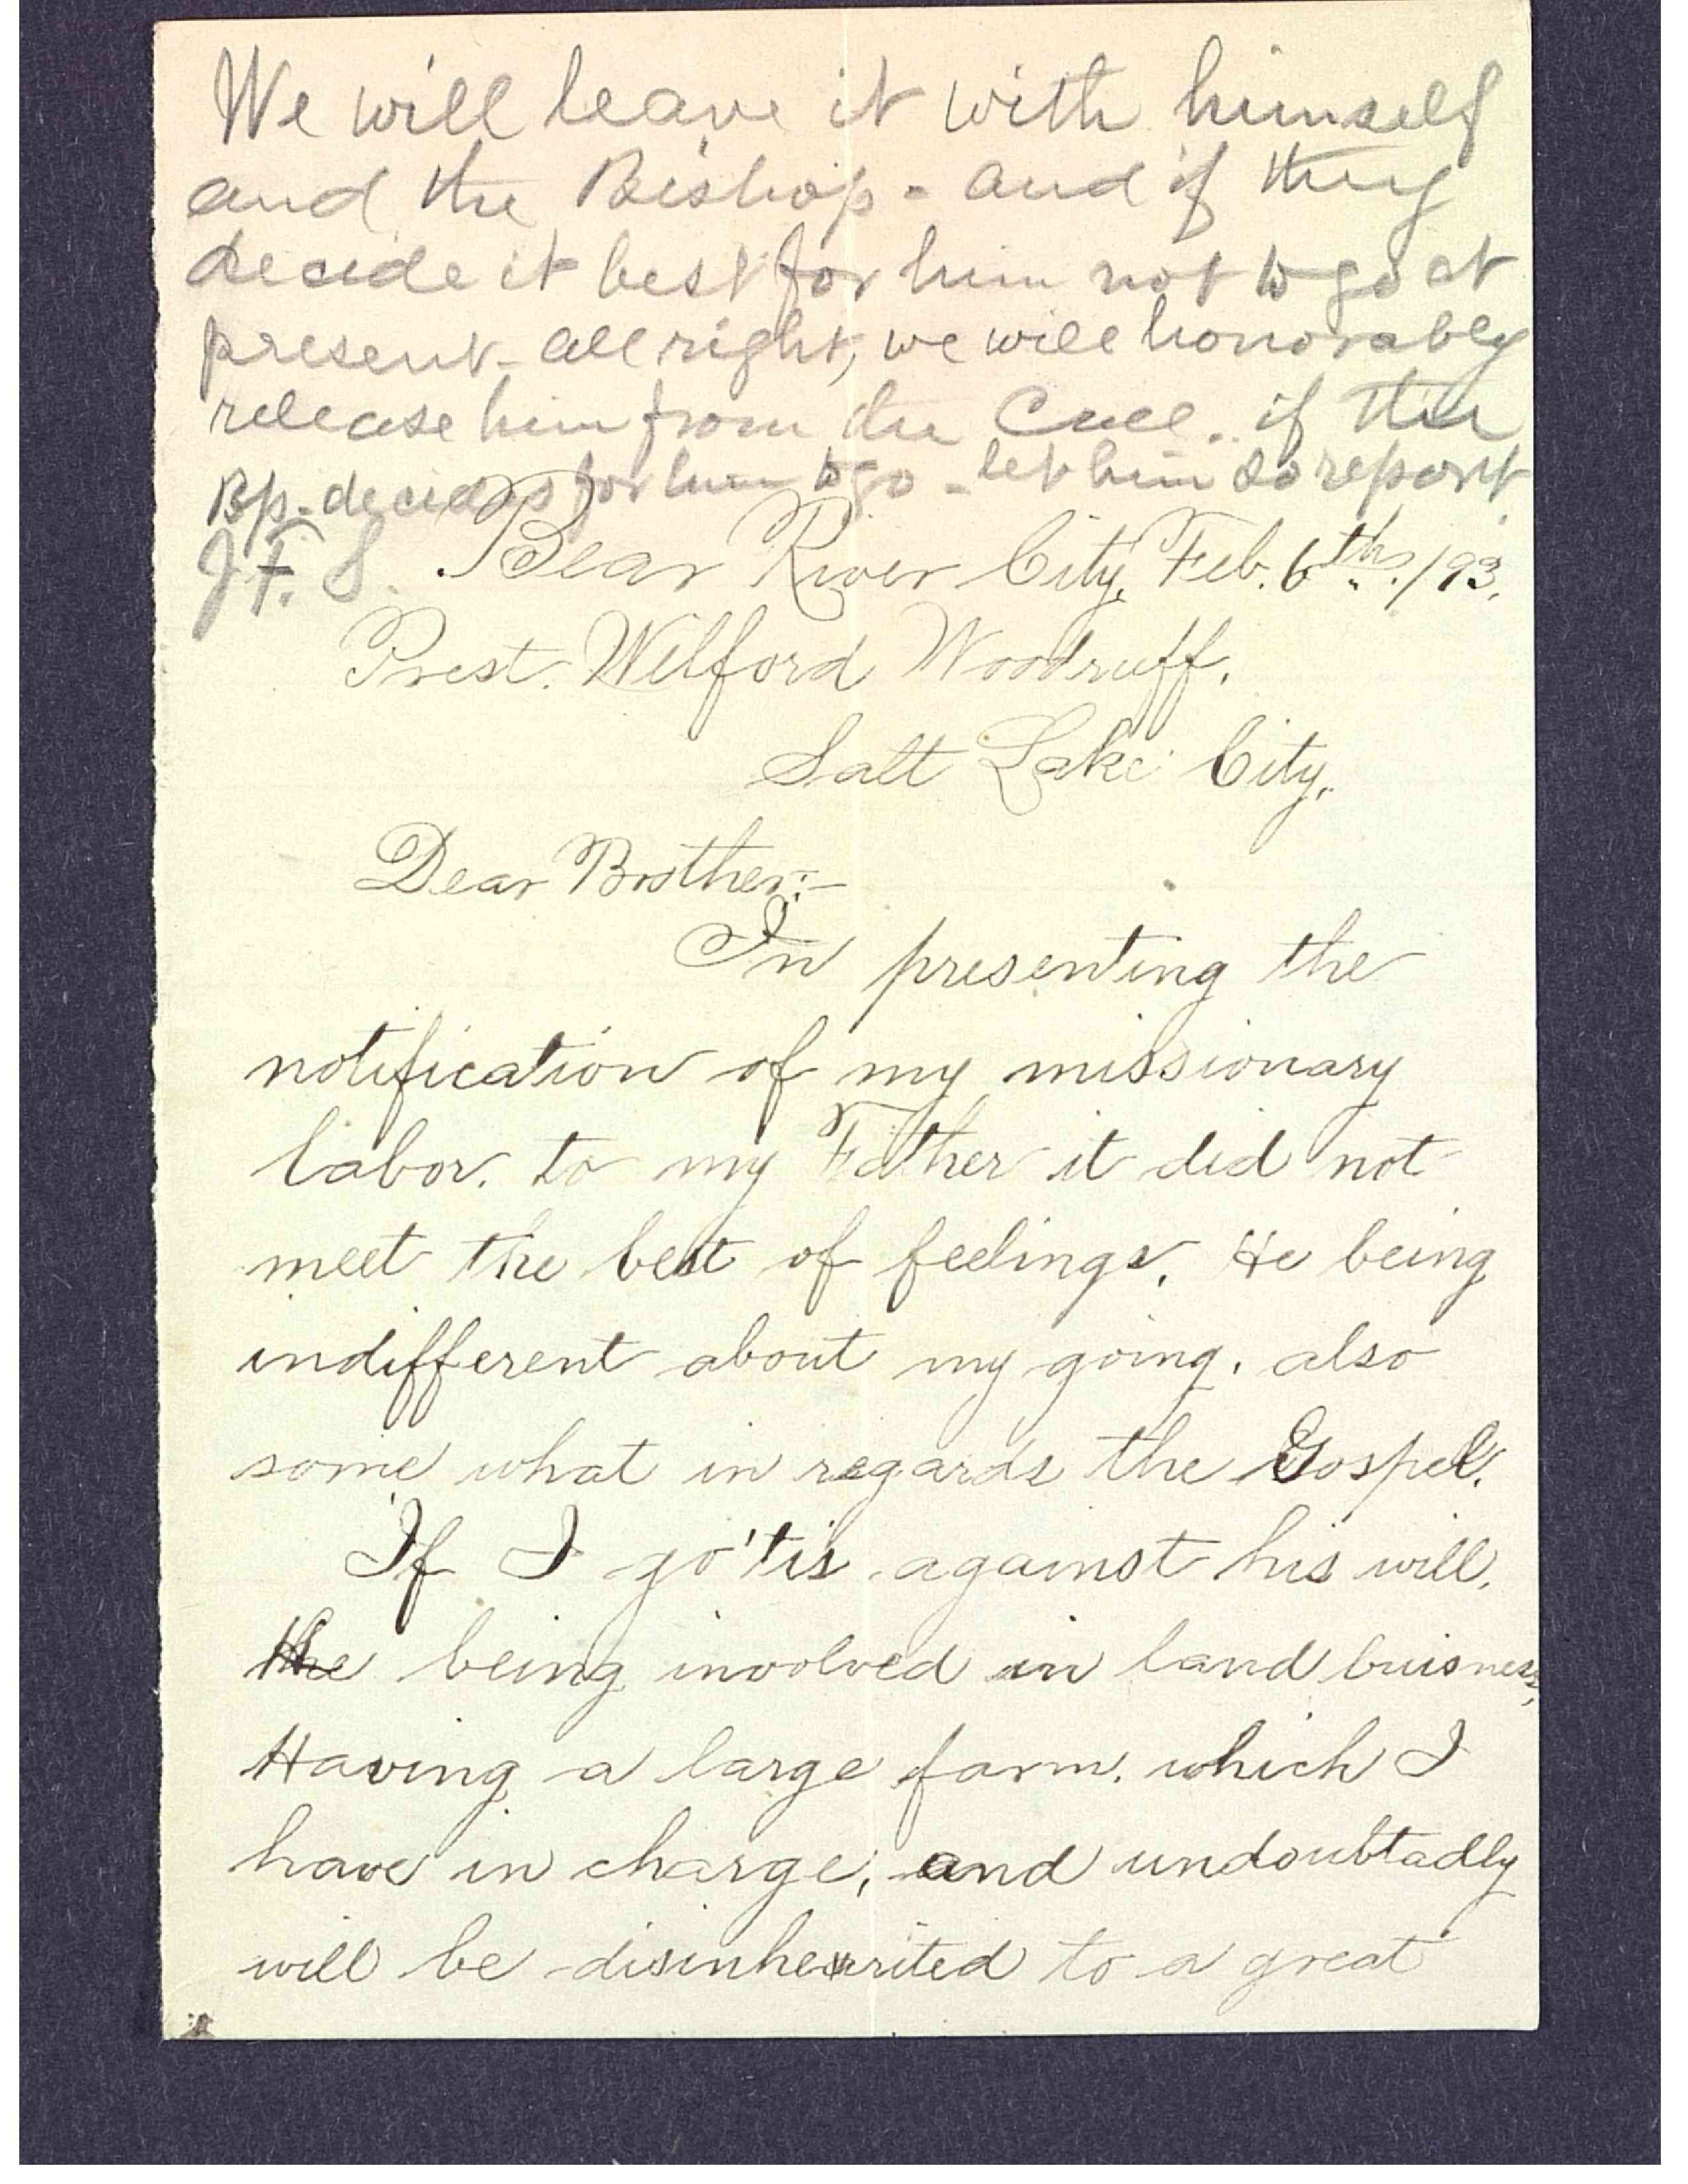 We will leave it with himself
and the Bishop - and if they
decide it best for him not to go at
present - all right, we will honorably
release him from the Call.. if the
Bp. decides for him to go - let him so report
J. F. S.
Bear River City, Feb. 6th. /93.
Prest. Wilford Woodruff.
Salt Lake City,
Dear Brother:-
In presenting the
notification of my missionary
labor. to my Father it did not
meet the best of feelings. He being
indifferent about my going. also
some what in regards the Gospel.
If I go 'tis against his will.
he being involved in land buisness,
Having a large farm. which I
have in charge, and undoubtadly
will be disinherited to a great